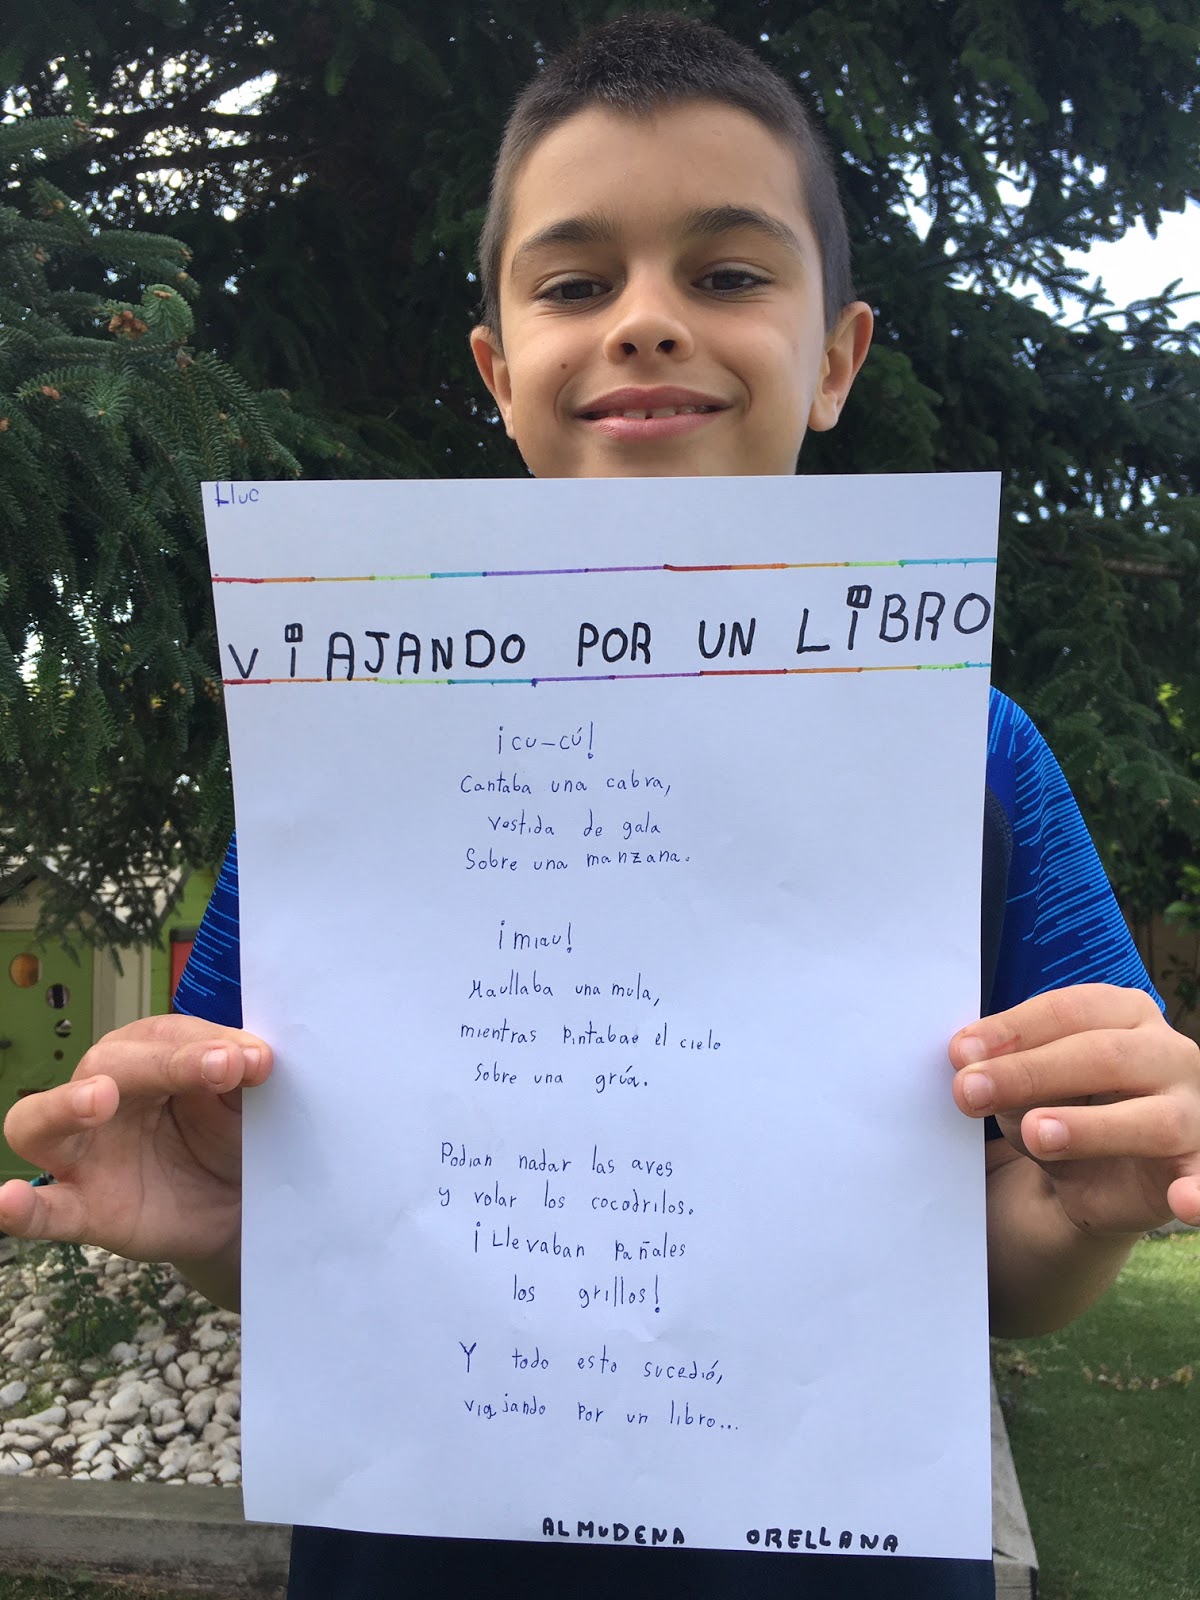 Lluc
VIAJANDO POR UN LIBRO
¡cu-cú!
Cantaba una cabra,
vestida de gala
Sobre una manzana.
¡miau!
Maullaba una mula,
mientras pintabae el cielo
sobre una grúa.
Podian nadar las aves
y volar los cocodrilos.
¡Llevaban pañales
los grillos!
Y todo esto sucedió,
viajando por un libro...
ALMUDENA ORELLANA